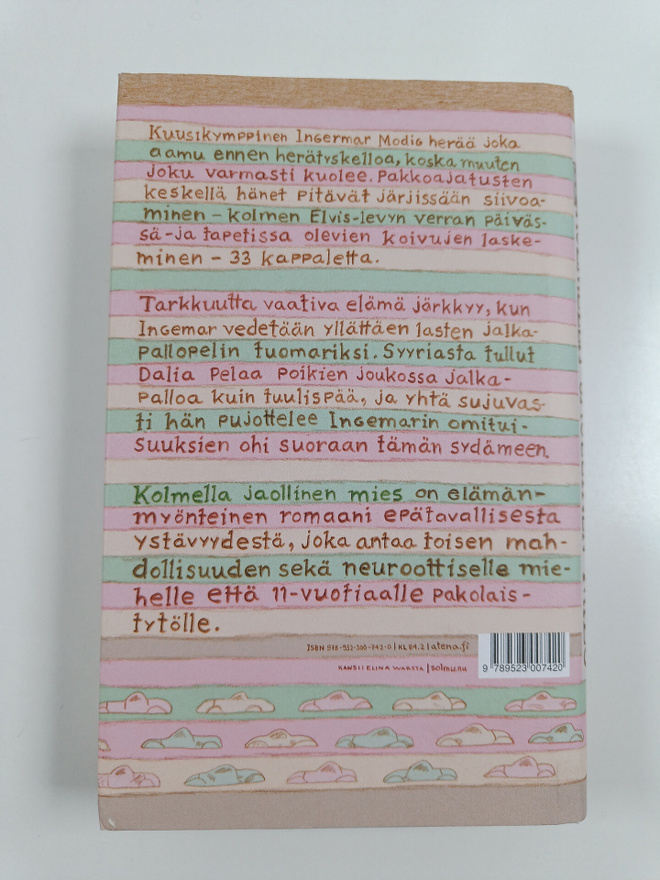 Kuusikymppinen Ingermar Modig herää joka
aamu ennen herätyskelloa, koska muuten
joku varmasti kuolee. Pakkoajatusten
keskellä hänet pitävät järjissään siivoa-
minen – kolmen Elvis-levyn verran päiväs-
sä – ja tapetissa olevien koivujen laske-
minen – 33 kappaletta.
Tarkkuutta vaativa elämä järkkyy, kun
Ingemar vedetään yllättäen lasten jalka-
pallopelin tuomariksi. Syyriasta tullut
Dalia pelaa poikien joukossa jalka-
palloa kuin tuulispää, ja yhtä sujuvas-
ti hän pujottelee Ingemarin omitui-
suuksien ohi suoraan tämän sydämeen.
Kolmella jaollinen mies on elämän-
myönteinen romaani epätavallisesta
ystävyydestä, joka antaa toisen mah-
dollisuuden sekä neuroottiselle mie-
helle että 11-vuotiaalle pakolais-
tytölle.
ISBN 978-952-300-742-0 | KL 84.2 | atena.fi
KANSI: ELINA WARSTA | solmunu
9 789523 007420